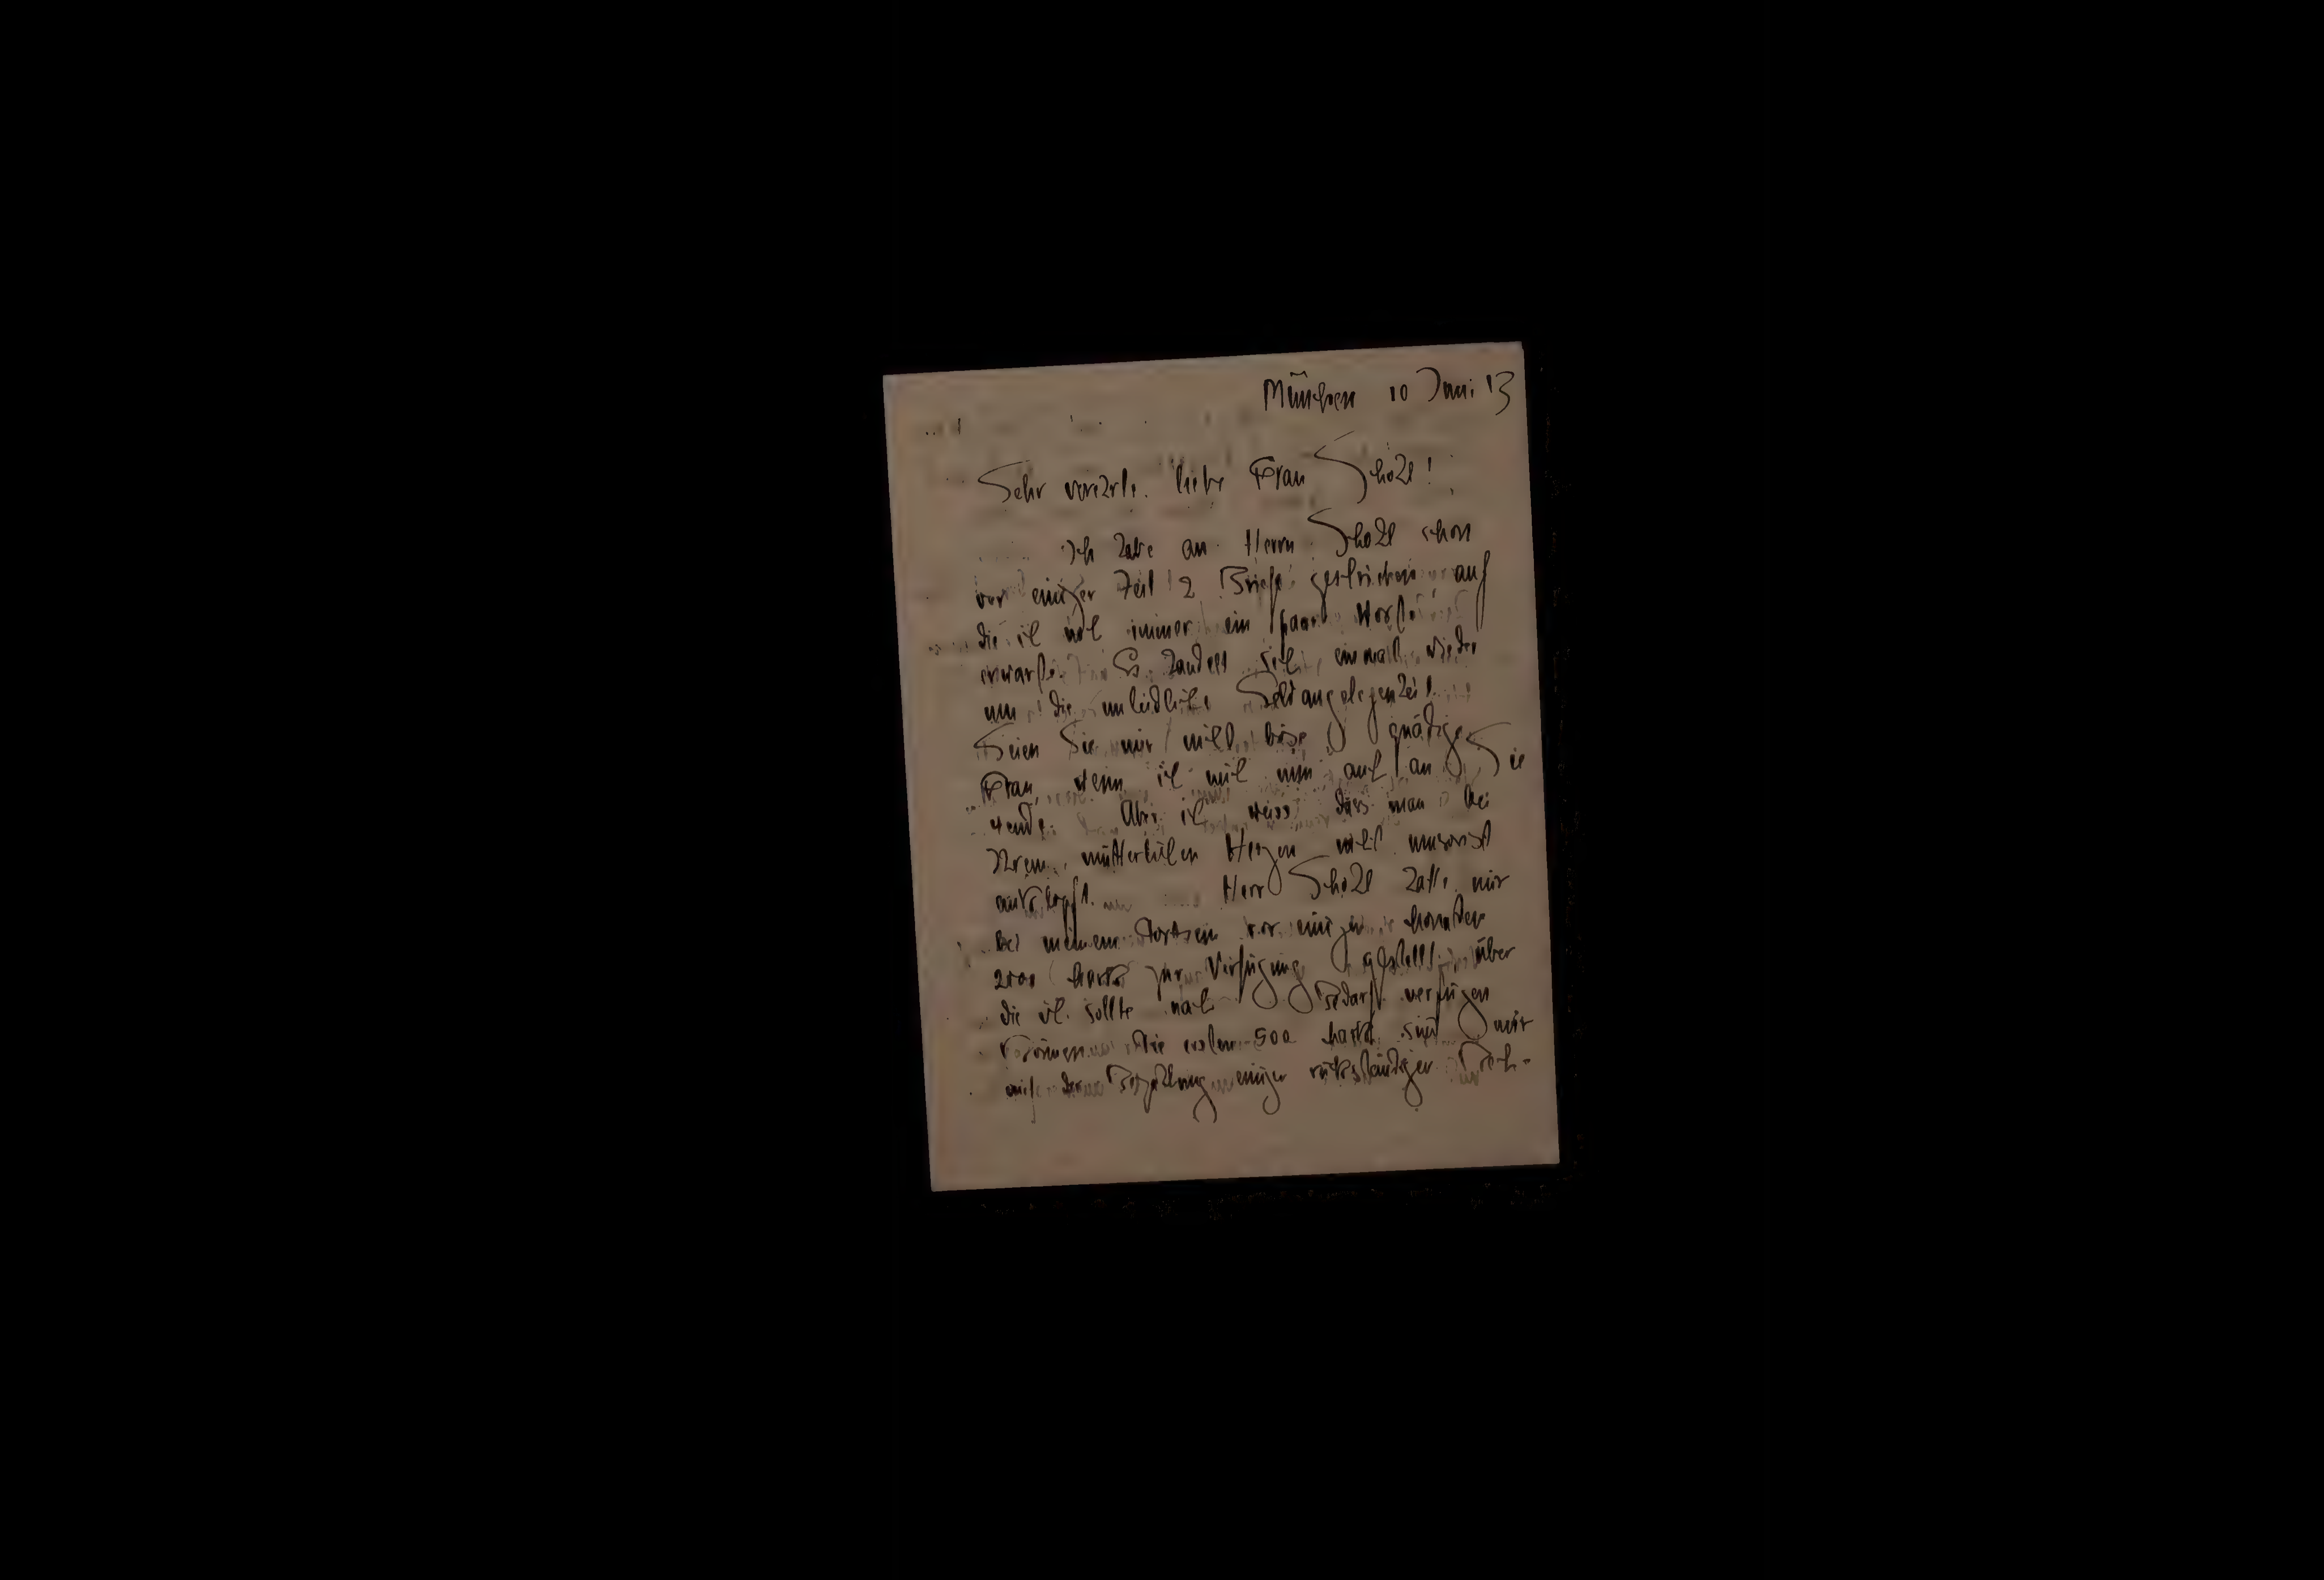 München 10 Juni 13
Sehr verehrte liebe Frau Schohl!
Ich habe an Herrn Schohl schon
vor einiger Zeit 2 Briefe geschrieben auf
die ich noch immer ein paar Worte
erwarte. Es handelt sich einmal wieder
um die unleidliche Geldangelegenheit.
Seien Sie mir nicht böse gnädige
Frau, wenn ich mich nun auch an Sie
wende. Aber ich weiss dass man bei
Ihrem mütterlichen Herzen nicht umsonst
anklopft. Herr Schohl hatte mir
bei meinem Dortsein vor einigen Monaten
2000 Mark zur Verfügung gestellt, über
die ich sollte nach Bedarf verfügen
können. Die ersten 500 Mark sind mir
mit der Bezahlung einiger rückständiger Rech-